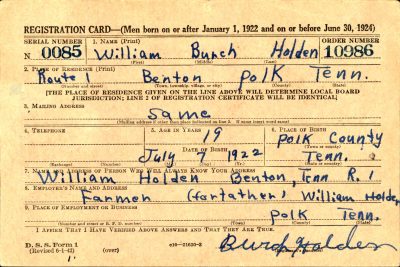 REGISTRATION CARD—(Men born on or after January 1, 1922 and on or before June 30, 1924)
SERIAL NUMBER 1. NAME (Print) ORDER NUMBER
N 0085 William Burch Holden 10986
(First) (Middle) (Last)
2. PLACE OF RESIDENCE (Print)
Route 1 Benton Polk Tenn.
(Number and street) (Town, township, village, or city) (County) (State)
[THE PLACE OF RESIDENCE GIVEN ON THE LINE ABOVE WILL DETERMINE LOCAL BOARD
JURISDICTION; LINE 2 OF REGISTRATION CERTIFICATE WILL BE IDENTICAL]
3. MAILING ADDRESS
Same
[Mailing address if other than place indicated on line 2. If same insert word same]
4. TELEPHONE 5. AGE IN YEARS 6. PLACE OF BIRTH
19 Polk County
DATE OF BIRTH (Town or county)
July 7 1922 Tenn.
(Exchange) (Number) (Mo.) (Day) (Yr.) (State or country)
7. NAME AND ADDRESS OF PERSON WHO WILL ALWAYS KNOW YOUR ADDRESS
William Holden Benton, Tenn R. 1
8. EMPLOYER'S NAME AND ADDRESS
Farmen (for father) William Holden
9. PLACE OF EMPLOYMENT OR BUSINESS
Polk Tenn.
(Number and street or R. F. D. number) (Town) (County) (State)
I AFFIRM THAT I HAVE VERIFIED ABOVE ANSWERS AND THAT THEY ARE TRUE.
D. S. S. Form 1
(Revised 6-1-42) (over) Burch Holden